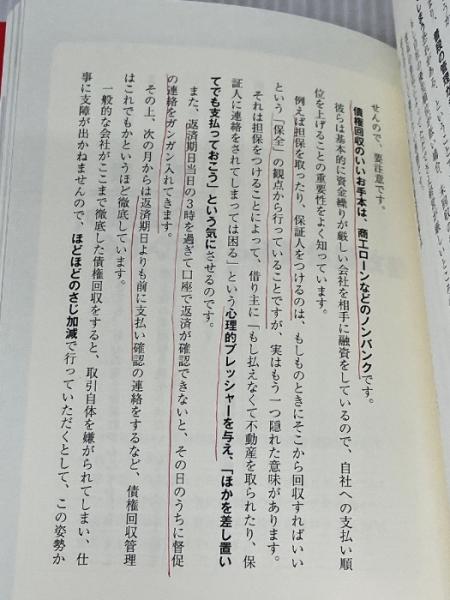 せんので、要注意です。
債権回収のいいお手本は、商工ローンなどのノンバンクです。
彼らは基本的に資金繰りが厳しい会社を相手に融資をしているので、自社への支払い順
位を上げることの重要性をよく知っています。
例えば担保を取ったり、保証人をつけるのは、もしものときにそこから回収すればいい
という「保全」の観点から行っていることですが、実はもう一つ隠れた意味があります。
それは担保をつけることによって、借り主に「もし払えなくて不動産を取られたり、保
証人に連絡をされてしまっては困る」という心理的プレッシャーを与え、「ほかを差し置い
てでも支払っておこう」という気にさせるのです。
また、返済期日当日の3時を過ぎて口座で返済が確認できないと、その日のうちに督促
の連絡をガンガン入れてきます。
その上、次の月からは返済期日よりも前に支払い確認の連絡をするなど、債権回収管理
はこれでもかというほど徹底しています。
一般的な会社がここまで徹底した債権回収をすると、取引自体を嫌がられてしまい、仕
事に支障が出かねませんので、ほどほどのさじ加減で行っていただくとして、この姿勢か